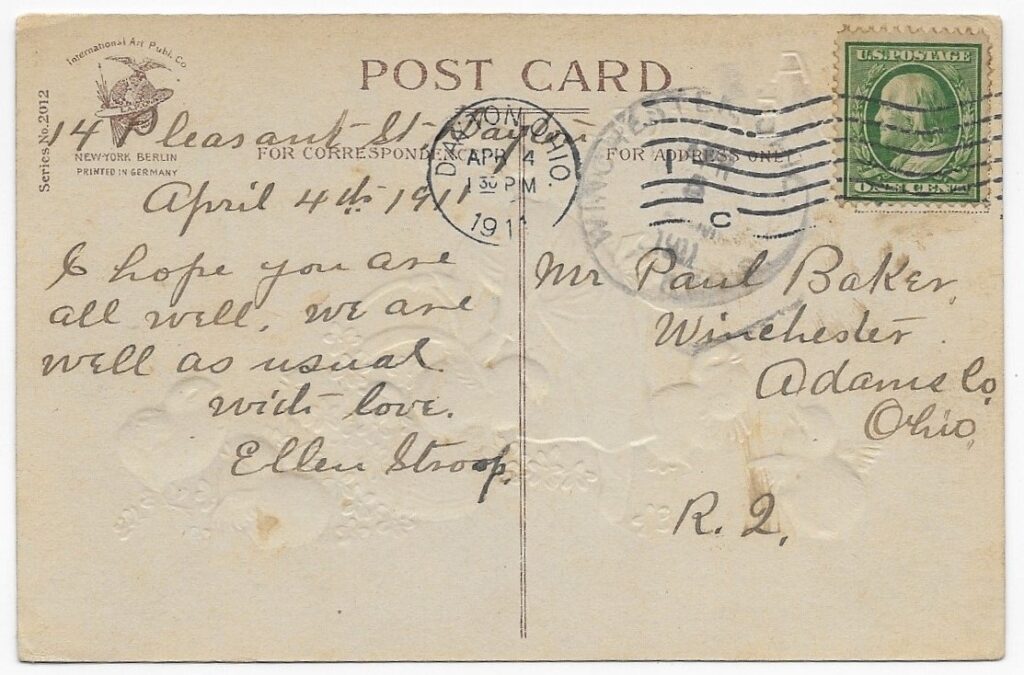 International Art Publ. Co.
Series No. 2012
NEW-YORK BERLIN
PRINTED IN GERMANY
POST CARD
FOR CORRESPONDENCE
FOR ADDRESS ONLY
U.S. POSTAGE
ONE CENT
DAYTON, OHIO
APR 4
1 30 PM
1911
WINCHESTER
C
14 Pleasant St Dayton
April 4th 1911
I hope you are
all well, we are
well as usual
with love.
Ellen Stroop.
Mr Paul Baker,
Winchester
Adams Co,
Ohio,
R. 2,